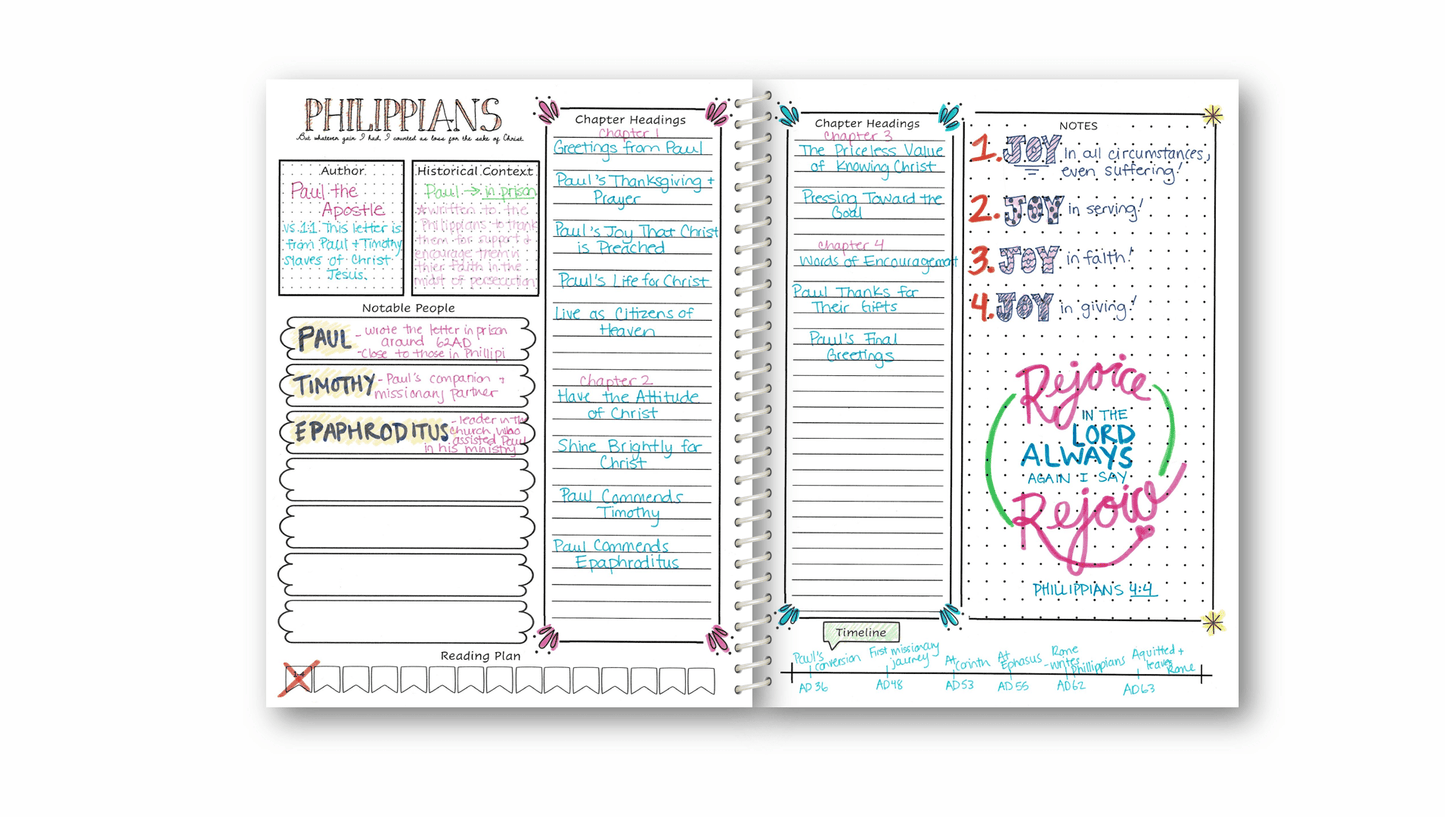 PHILIPPIANS
But whatever gain I had, I counted as loss for the sake of Christ.
Author
Paul the
Apostle
vs 1:1: This letter is
from Paul + Timothy
slaves of Christ
Jesus.
Historical Context
Paul → in prison
*written to the
Philippians to thank
them for support &
encourage them in
thier faith in the
midst of persecution
Notable People
PAUL - wrote the letter in prison
around 62AD
-Close to those in Phillipi
TIMOTHY - Paul's companion +
missionary partner
EPAPHRODITUS - leader in the
church who
assisted Paul
in his ministry
Reading Plan
Chapter Headings
Chapter 1
Greetings from Paul
Paul's Thanksgiving +
Prayer
Paul's Joy That Christ
is Preached
Paul's Life for Christ
Live as Citizens of
Heaven
Chapter 2
Have the Attitude
of Christ
Shine Brightly for
Christ
Paul Commends
Timothy
Paul Commends
Epaphroditus
Chapter Headings
Chapter 3
The Priceless Value
of Knowing Christ
Pressing Toward the
Goal
Chapter 4
Words of Encouragement
Paul Thanks for
Their Gifts
Paul's Final
Greetings
NOTES
1. JOY in all circumstances,
even suffering!
2. JOY in serving!
3. JOY in faith!
4. JOY in giving!
Rejoice
IN THE
LORD
ALWAYS
AGAIN I SAY
Rejoice
PHILLIPPIANS 4:4
Timeline
Paul's conversion
AD 36
First missionary journey
AD 48
At Corinth
AD 53
At Ephasus
AD 55
Rome - writes Phillippians
AD 62
Aquitted + leaves Rome
AD 63